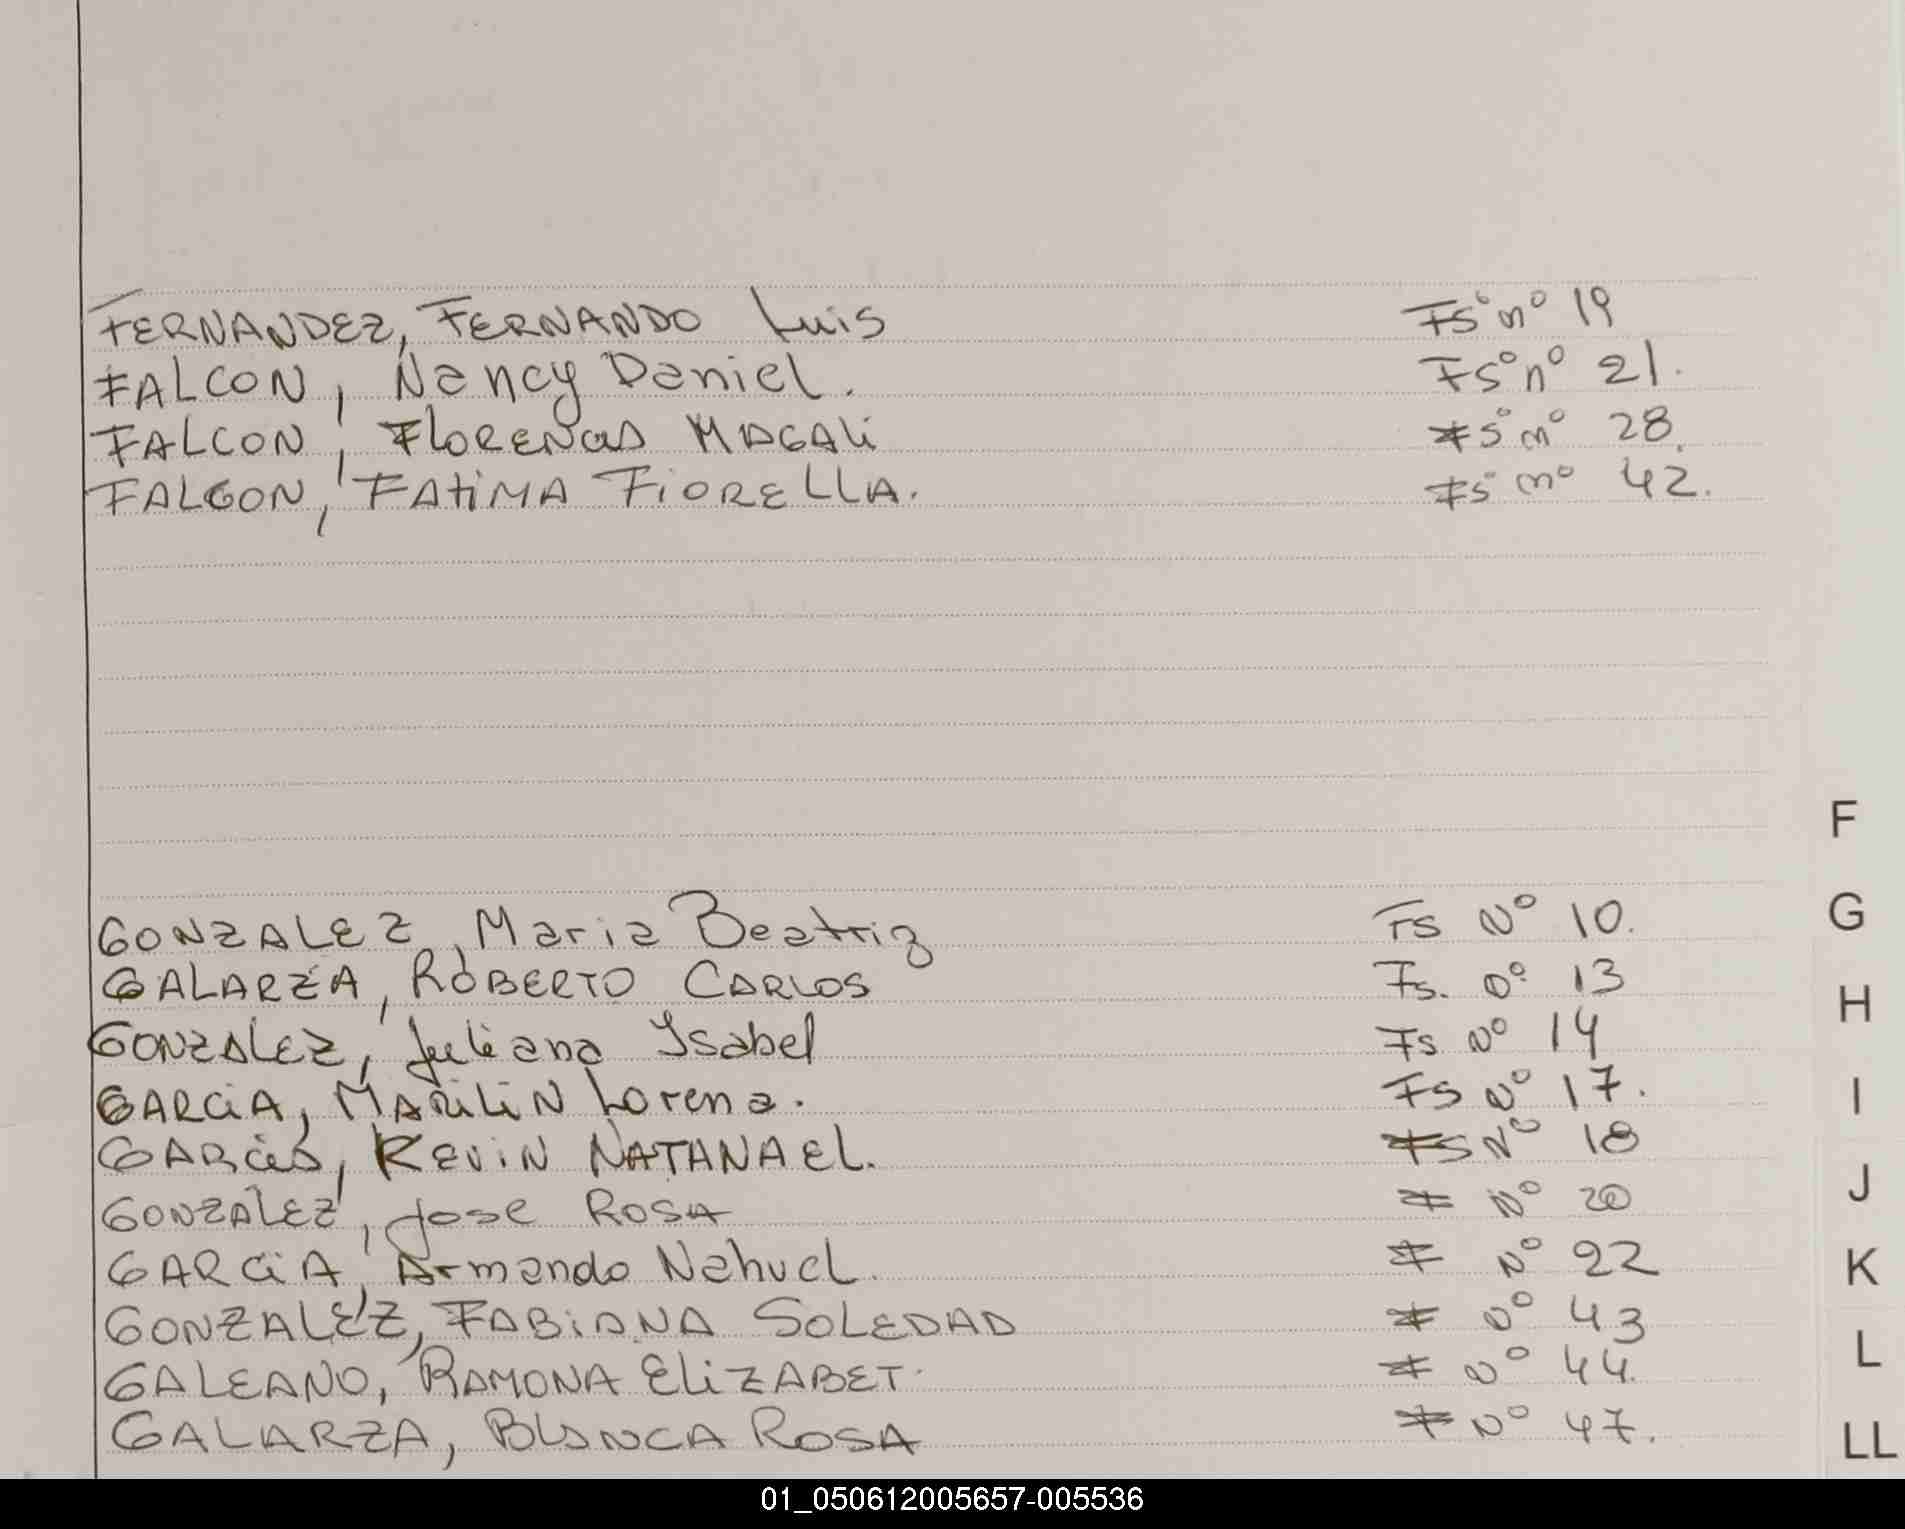 FERNANDEZ, FERNANDO Luis Fs° n° 19
FALCON, Nancy Daniel. Fs° n° 21.
FALCON, FLORENCIA MAGALI Fs° n° 28.
FALCON, FATIMA FIORELLA. Fs n° 42.
F
GONZALEZ, Maria Beatriz Fs N° 10.
G
GALARZA, ROBERTO CARLOS Fs. n° 13
H
GONZALEZ, Juliana Isabel Fs N° 14
GARCIA, MARILIN Lorena. Fs N° 17.
I
GARCIA, KEVIN NATANAEL. Fs N° 18
GONZALEZ, Jose ROSA F N° 20
J
GARCIA, Armando Nahuel. F N° 22
K
GONZALEZ, FABIANA SOLEDAD F N° 43
L
GALEANO, RAMONA ELIZABET. F N° 44.
GALARZA, BLANCA ROSA F N° 47.
LL
01_050612005657-005536